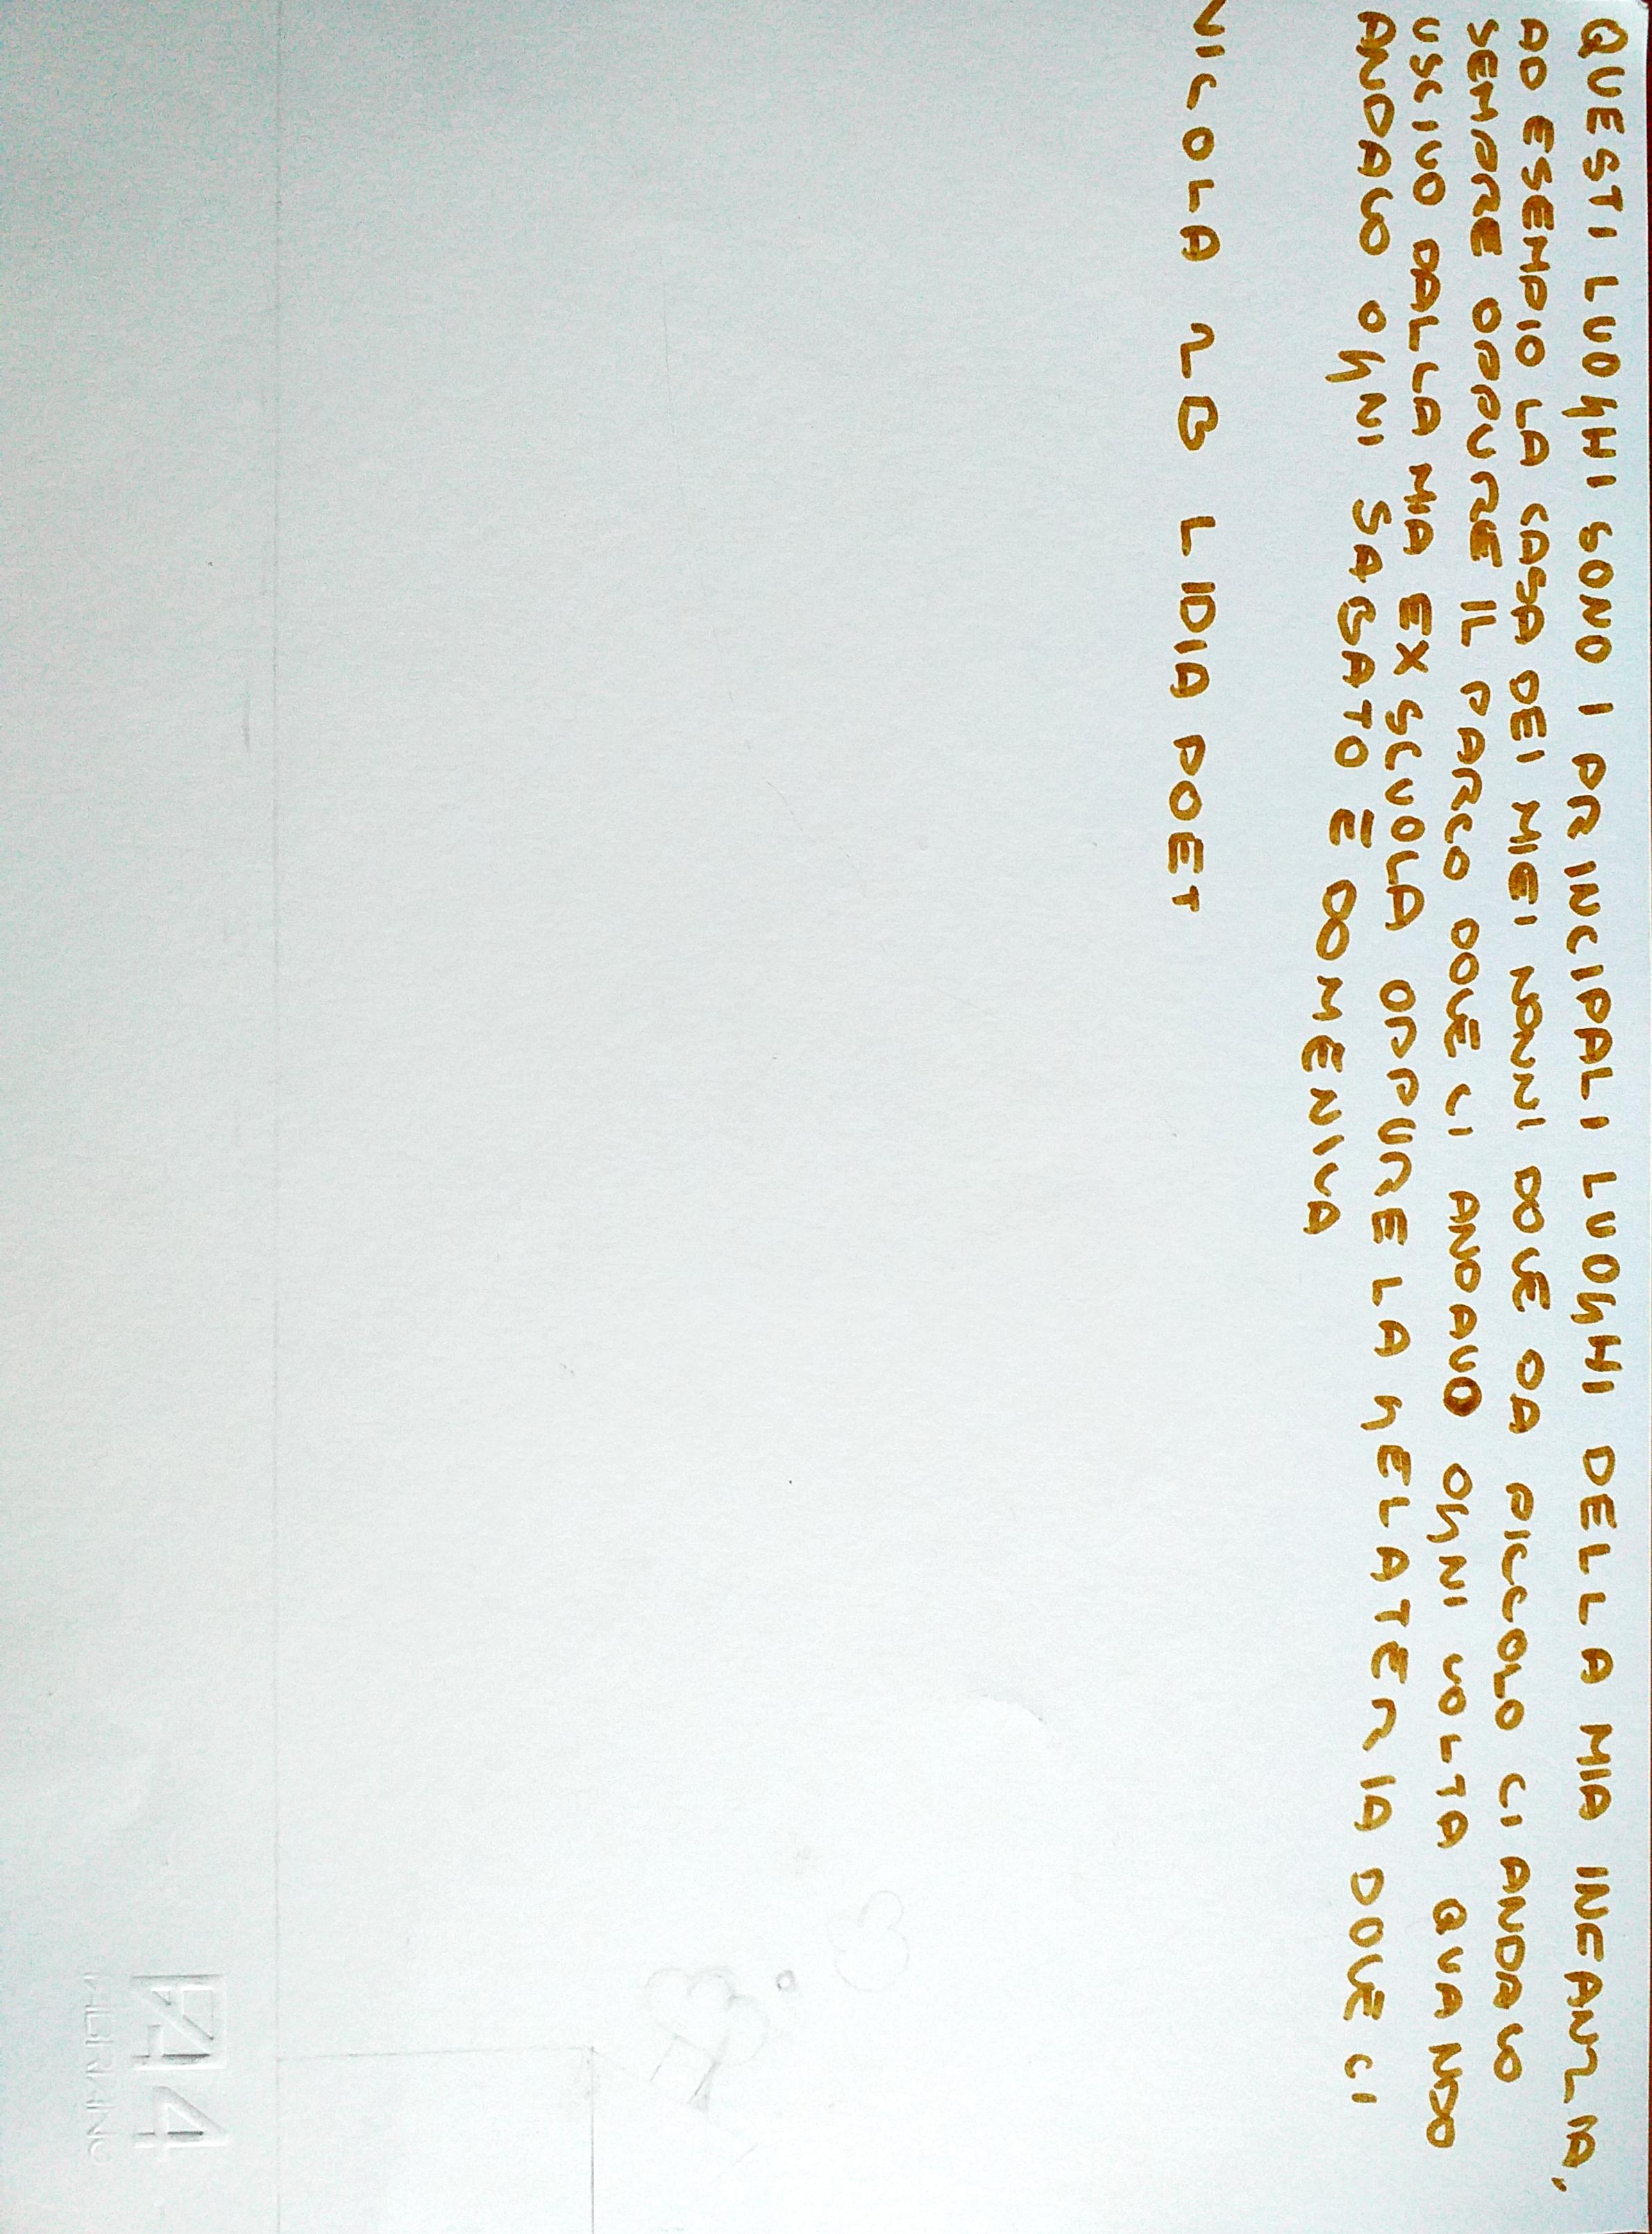 QUESTI LUOGHI SONO I PRINCIPALI LUOGHI DELLA MIA INFANZIA,
AD ESEMPIO LA CASA DEI MIEI NONNI DOVE DA PICCOLO CI ANDAVO
SEMPRE OPPURE IL PARCO DOVE CI ANDAVO OGNI VOLTA QUANDO
USCIVO DALLA MIA EX SCUOLA OPPURE LA GELATERIA DOVE CI
ANDAVO OGNI SABATO E DOMENICA
NICOLA 2B LIDIA POET
F4
FABRIANO